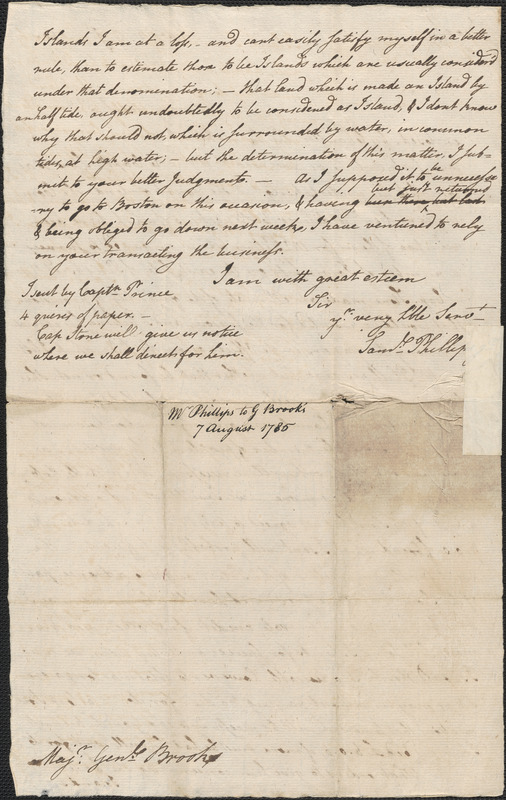 Islands I am at a loss, – and cant easily satisfy myself in a better
rule, than to estimate those to be Islands which are usually considerd
under that denomination; – that land which is made an Island by
an half tide, ought undoubtedly to be considered as Island, & I dont know
why that should not, which is surrounded by water, in common
tides, at high water; – but the determination of this matter, I sub-
mit to your better Judgments. – As I supposed it to be unnecessa
ry to go to Boston on this occasion, & having but just returned
& being obliged to go down next week, I have ventured to rely
on your transacting the business.
I am with great esteem
Sir
yr. very Hble Servt
Saml. Phillip
I sent by Captn Prince
4 quires of paper. –
Cap Stone will give us notice
where we shall direct for him.
Mr Phillips to G Brooks
7 August 1785
Majr. Genl. Brooks